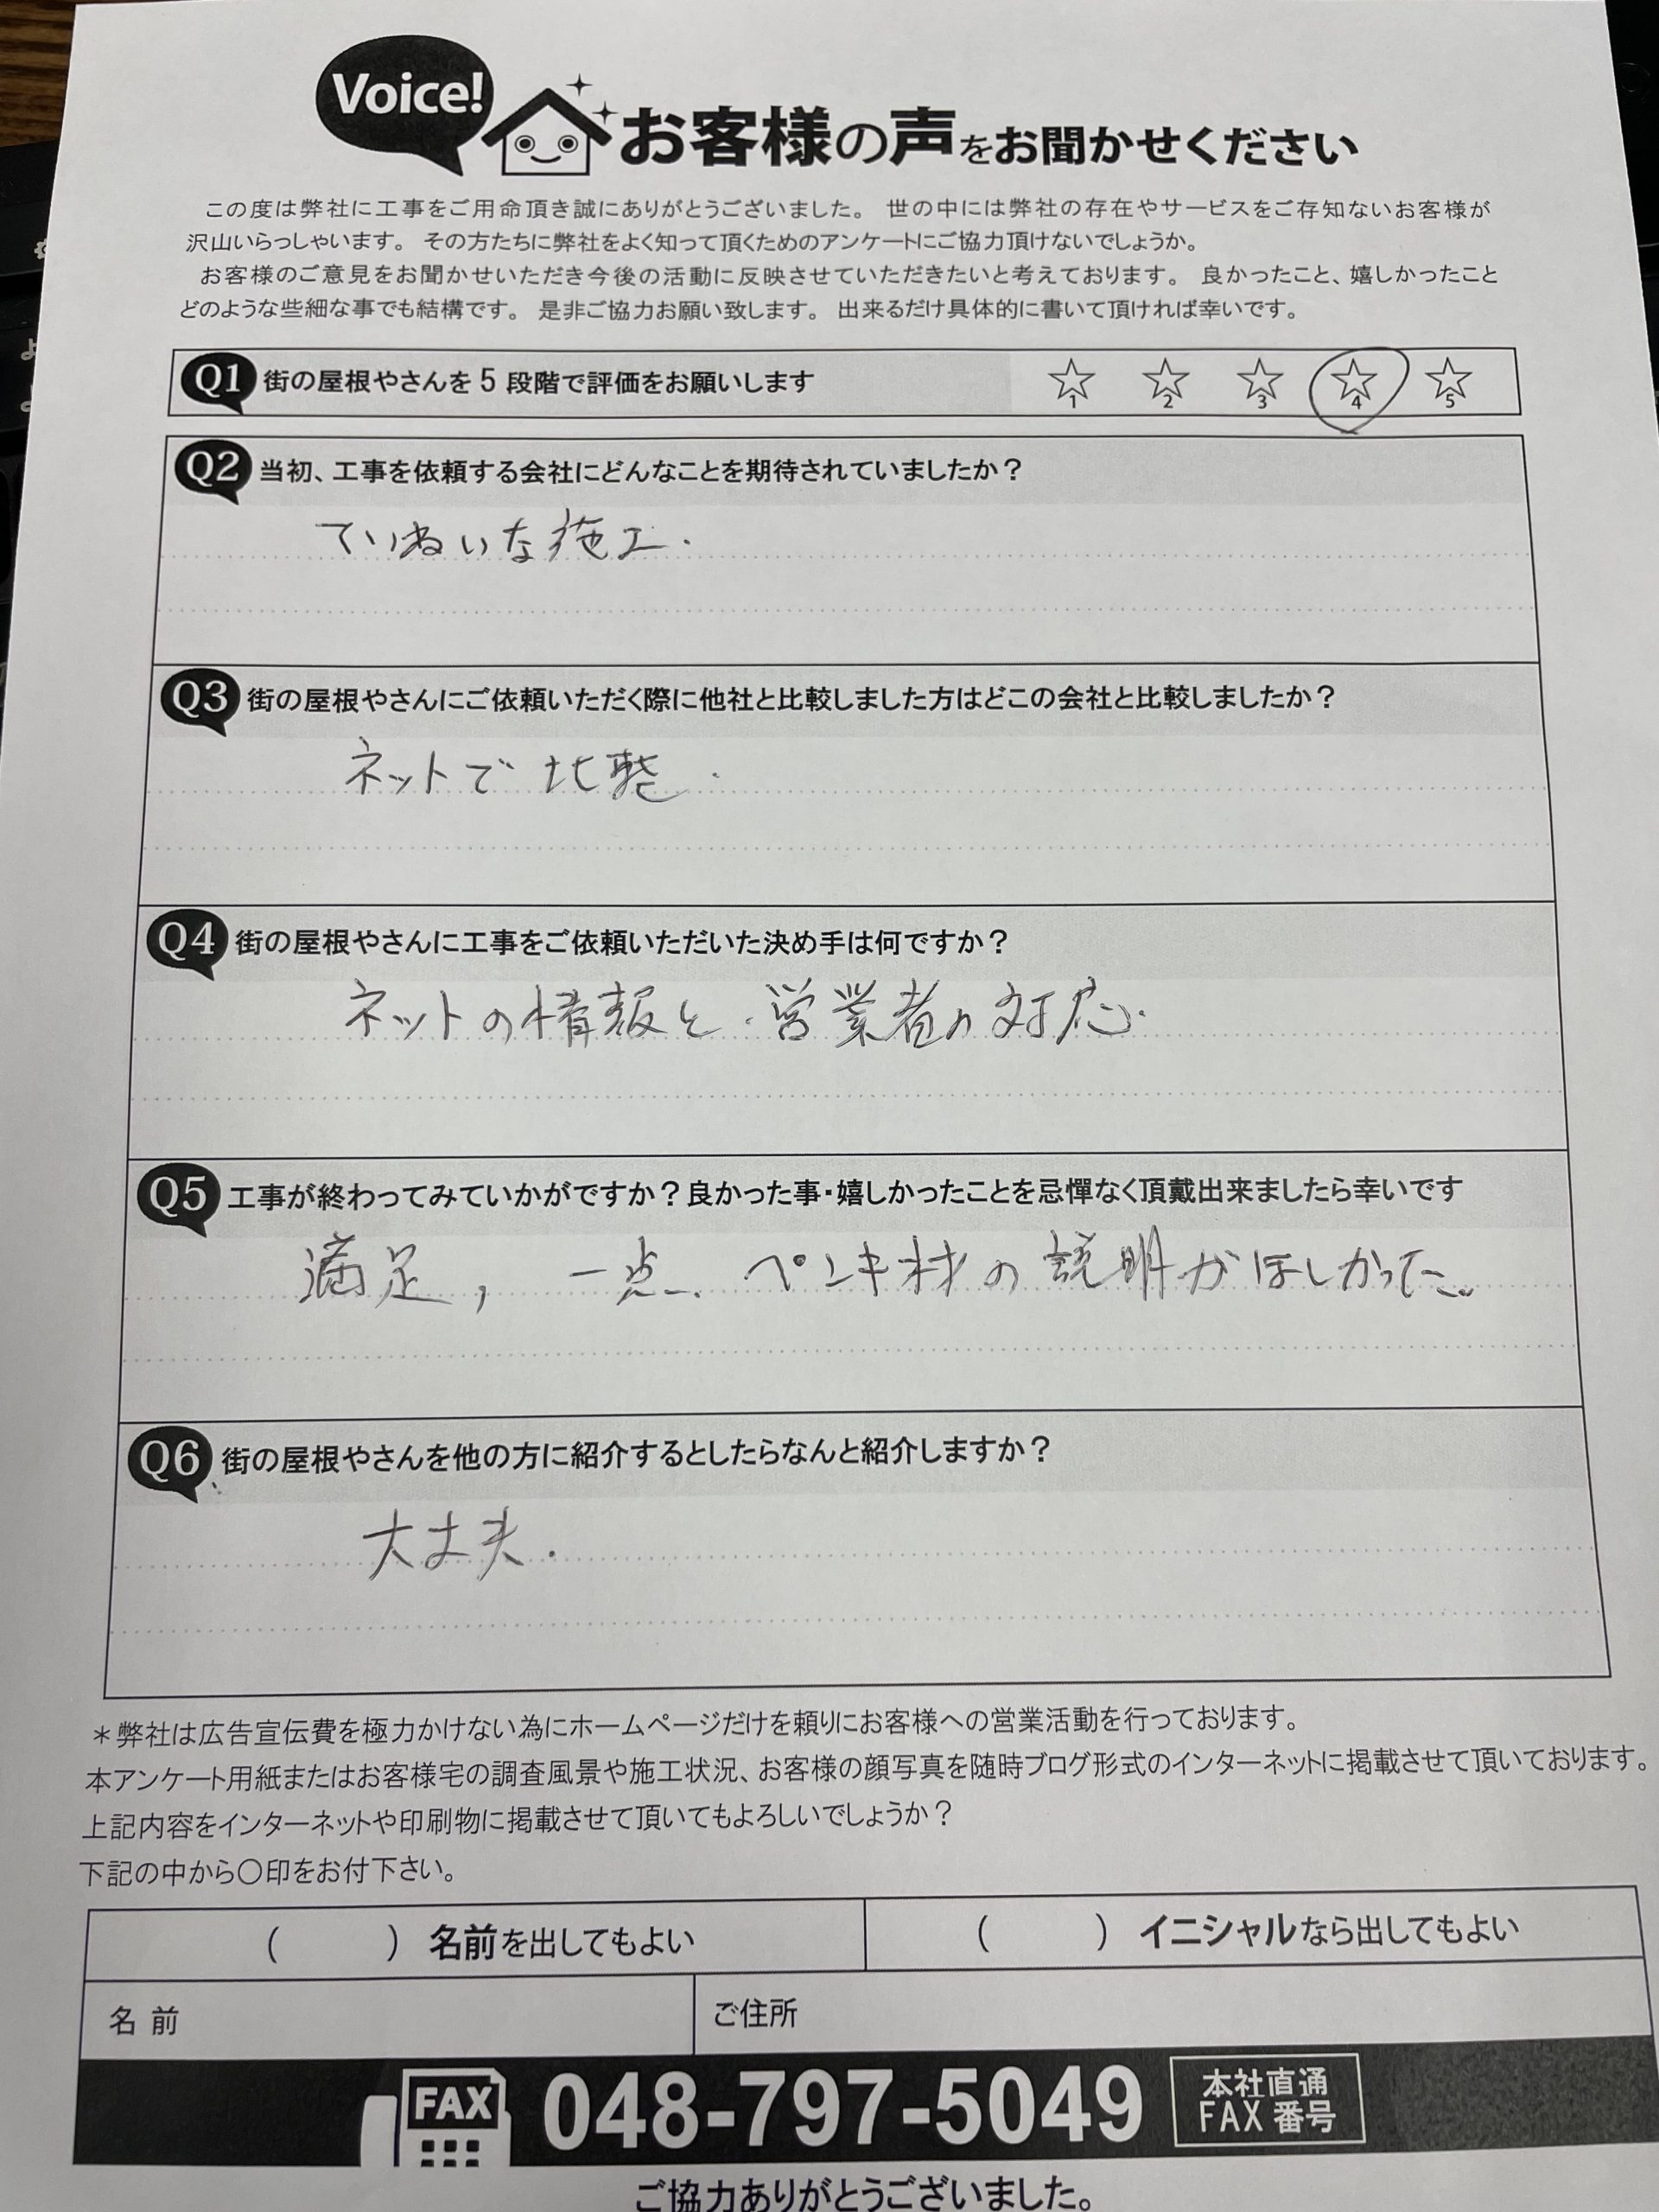 Voice!
お客様の声をお聞かせください
この度は弊社に工事をご用命頂き誠にありがとうございました。 世の中には弊社の存在やサービスをご存知ないお客様が
沢山いらっしゃいます。 その方たちに弊社をよく知って頂くためのアンケートにご協力頂けないでしょうか。
お客様のご意見をお聞かせいただき今後の活動に反映させていただきたいと考えております。 良かったこと、嬉しかったこと
どのような些細な事でも結構です。 是非ご協力お願い致します。 出来るだけ具体的に書いて頂ければ幸いです。
Q1 街の屋根やさんを5段階で評価をお願いします ☆1 ☆2 ☆3 ☆4 ☆5
Q2 当初、工事を依頼する会社にどんなことを期待されていましたか？
ていねいな施工.
Q3 街の屋根やさんにご依頼いただく際に他社と比較しました方はどこの会社と比較しましたか？
ネットで比較.
Q4 街の屋根やさんに工事をご依頼いただいた決め手は何ですか？
ネットの情報と.営業者の対応.
Q5 工事が終わってみていかがですか？良かった事・嬉しかったことを忌憚なく頂戴出来ましたら幸いです
満足, 一点. ペンキ材の説明がほしかった。
Q6 街の屋根やさんを他の方に紹介するとしたらなんと紹介しますか？
大丈夫.
＊弊社は広告宣伝費を極力かけない為にホームページだけを頼りにお客様への営業活動を行っております。
本アンケート用紙またはお客様宅の調査風景や施工状況、お客様の顔写真を随時ブログ形式のインターネットに掲載させて頂いております。
上記内容をインターネットや印刷物に掲載させて頂いてもよろしいでしょうか？
下記の中から〇印をお付下さい。
(　　) 名前を出してもよい (　　) イニシャルなら出してもよい
名 前 ご住所
FAX 048-797-5049 本社直通
FAX 番号
ご協力ありがとうございました。